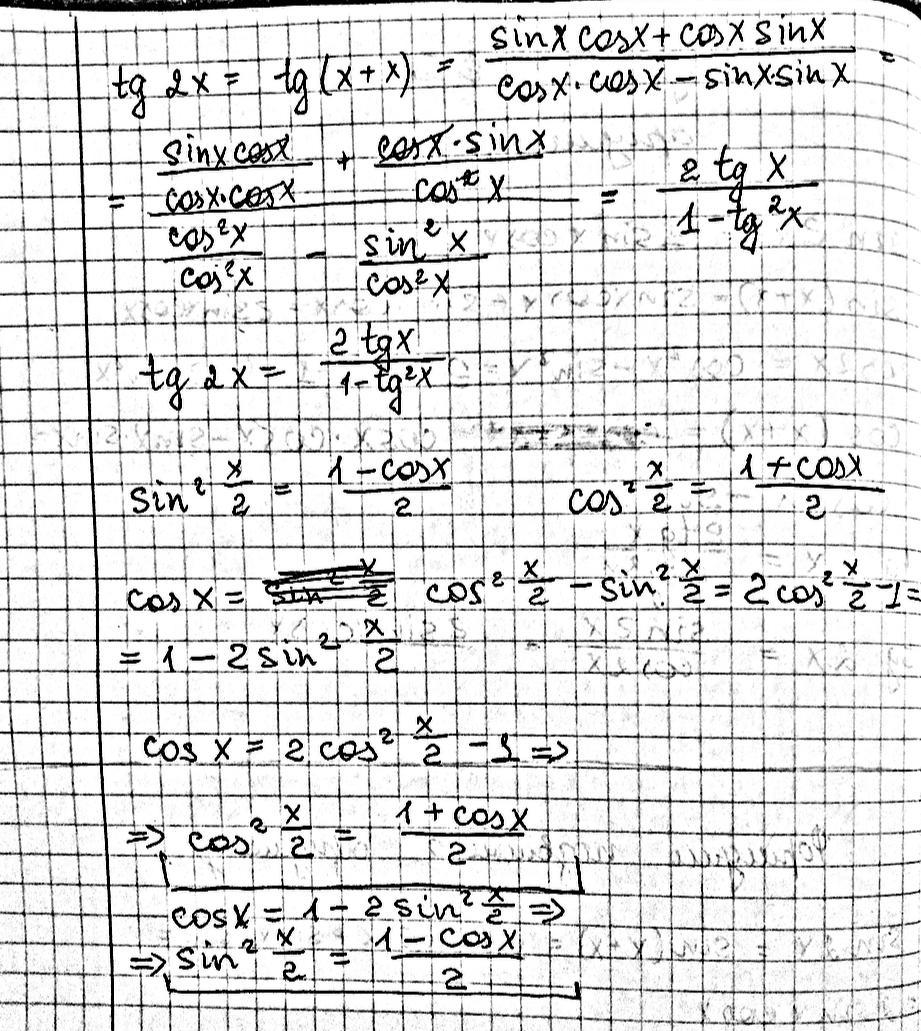 tg 2x = tg (x + x) = (sinx cosx + cosx sinx)/(cosx·cosx − sinx·sinx) =
= ((sinx cosx)/(cosx·cosx) + (cosx·sinx)/(cos² x))/((cos²x)/(cos²x) − (sin² x)/(cos² x)) = (2 tg x)/(1 − tg²x)
tg 2x = (2 tgx)/(1 − tg²x)
sin² x/2 = (1 − cosx)/2 cos² x/2 = (1 + cosx)/2
cos x = sin² x/2 cos² x/2 − sin² x/2 = 2 cos² x/2 − 1 =
= 1 − 2 sin² x/2
cos x = 2 cos² x/2 − 1 ⇒
⇒ cos² x/2 = (1 + cosx)/2
cosx = 1 − 2 sin² x/2 ⇒
⇒ sin² x/2 = (1 − cosx)/2